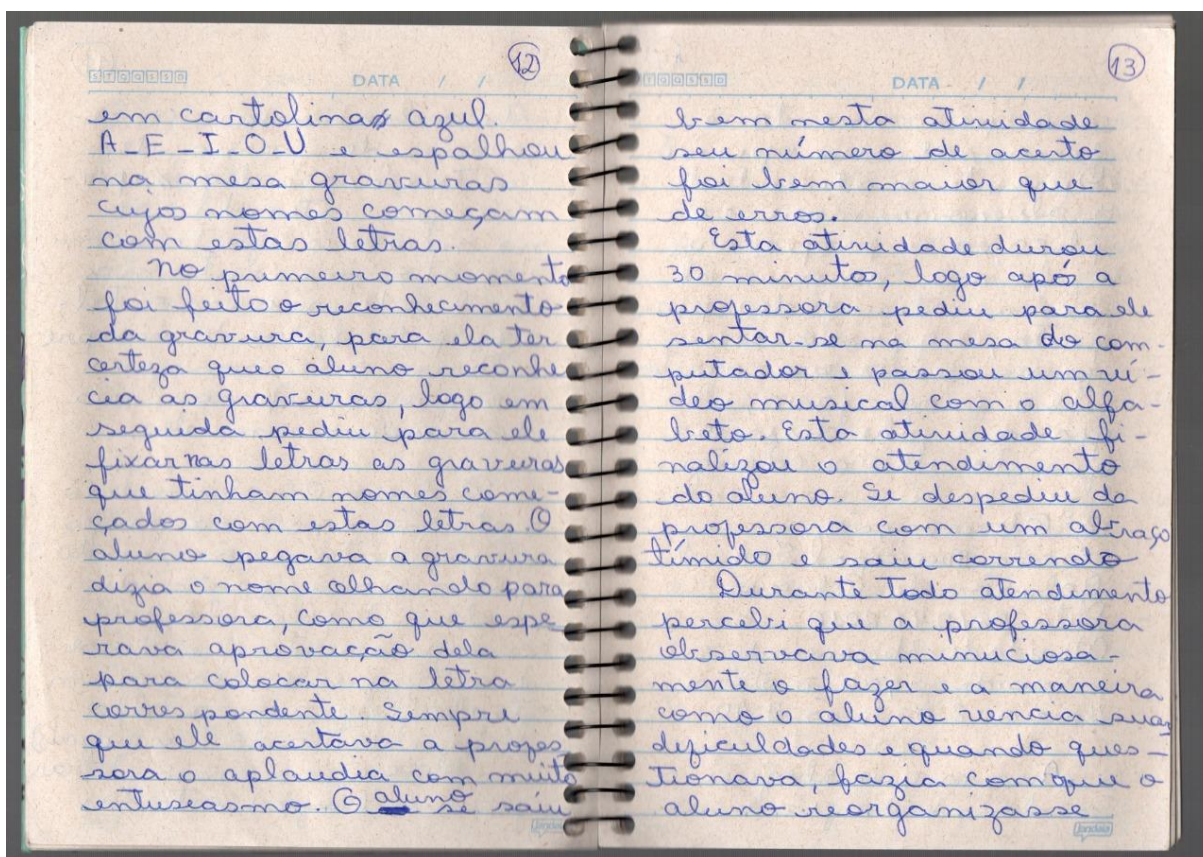 12
STQQSSD
DATA / /
em cartolina azul.
A-E-I-O-U e espalhou
na mesa gravuras
cujos nomes começam
com estas letras.
No primeiro momento
foi feito o reconhecimento
da gravura, para ela ter
certeza que o aluno reconhe
cia as gravuras, logo em
seguida pediu para ele
fixar nas letras as gravuras
que tinham nomes come-
çados com estas letras. O
aluno pegava a gravura
dizia o nome olhando para
professora, como que espe
rava aprovação dela
para colocar na letra
correspondente. Sempre
que ele acertava a profes
sora o aplaudia com muito
entuseasmo. O aluno se saiu
jandaia
13
STQQSSD
DATA / /
bem nesta atividade
seu número de acerto
foi bem maior que
de erros.
Esta atividade durou
30 minutos, logo após a
professora pediu para ele
sentar-se na mesa do com-
putador e passou um ví-
deo musical com o alfa-
beto. Esta atividade fi-
nalizou o atendimento
do aluno. Se despediu da
professora com um abraço
tímido e saiu correndo
Durante todo atendimento
percebi que a professora
observava minuciosa-
mente o fazer e a maneira
como o aluno vencia suas
dificuldades e quando ques-
tionava, fazia com que o
aluno reorganizasse
jandaia